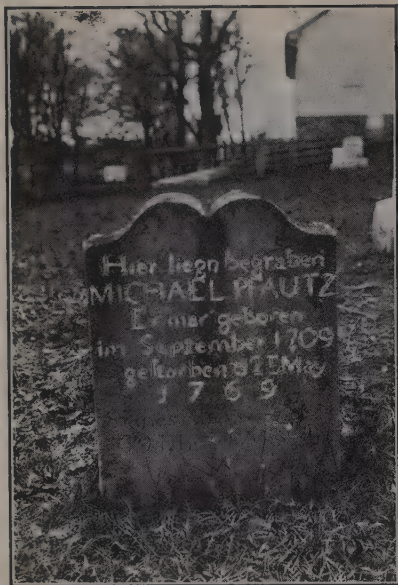 Hier liegn begraben
MICHAEL PFAUTZ
Er war geboren
im September 1709
gestorben May
1769